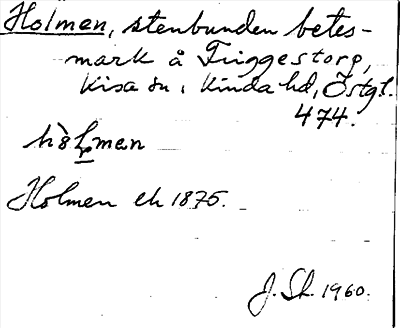 Holmen, stenbunden betes-
mark å Friggestorp,
Kisa sn, Kinda hd, Östgl.
474.
hòḷmen
Holmen ek 1875.
J. Sk. 1960.